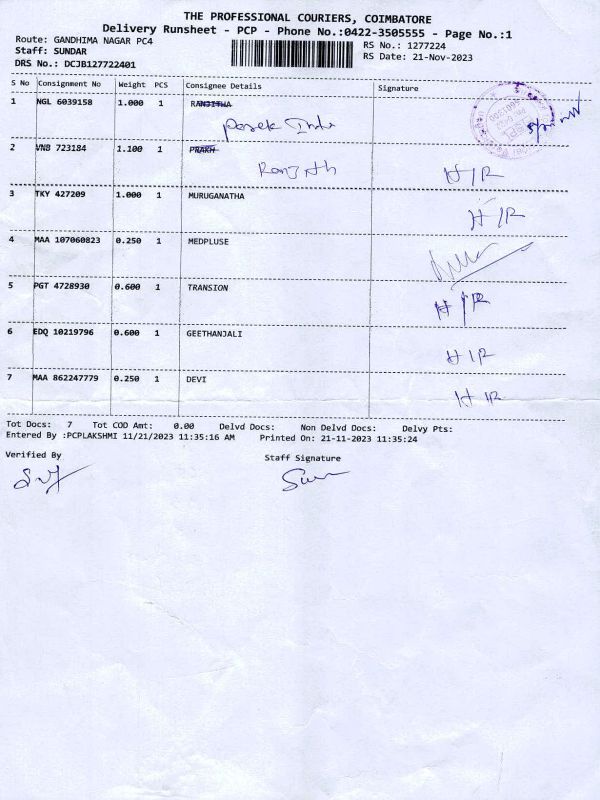 THE PROFESSIONAL COURIERS, COIMBATORE
Delivery Runsheet - PCP - Phone No.:0422-3505555 - Page No.:1
Route: GANDHIMA NAGAR PC4
RS No.: 1277224
Staff: SUNDAR
RS Date: 21-Nov-2023
DRS No.: DCJB127722401
S No Consignment No Weight PCS Consignee Details Signature
1 NGL 6039158 1.000 1 RANJITHA
2 VNB 723184 1.100 1 PRAKH
Ranjith H/R
3 TKY 427209 1.000 1 MURUGANATHA
H/R
4 MAA 107060823 0.250 1 MEDPLUSE
5 PGT 4728930 0.600 1 TRANSION
H/R
6 EDQ 10219796 0.600 1 GEETHANJALI
H/R
7 MAA 862247779 0.250 1 DEVI
H/R
Tot Docs: 7 Tot COD Amt: 0.00 Delvd Docs: Non Delvd Docs: Delvy Pts:
Entered By :PCPLAKSHMI 11/21/2023 11:35:16 AM Printed On: 21-11-2023 11:35:24
Verified By Staff Signature